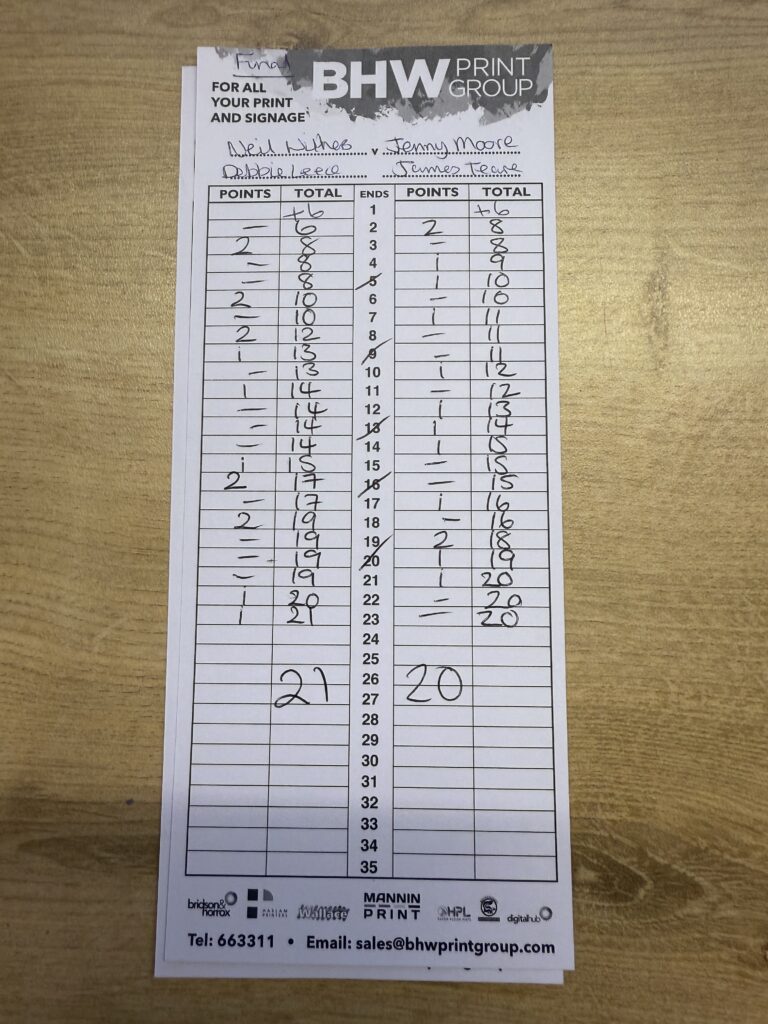 Final
BHW PRINT GROUP
FOR ALL
YOUR PRINT
AND SIGNAGE
Neil v Jenny Moore
Debbie Leece James Teare
POINTS TOTAL ENDS POINTS TOTAL
+6 1 +6
– 6 2 2 8
2 8 3 – 8
– 8 4 1 9
– 8 5 1 10
2 10 6 – 10
– 10 7 1 11
2 12 8 – 11
1 13 9 – 11
– 13 10 1 12
1 14 11 – 12
– 14 12 1 13
– 14 13 1 14
– 14 14 1 15
1 15 15 – 15
2 17 16 – 15
– 17 17 1 16
2 19 18 – 16
– 19 19 2 18
– 19 20 1 19
– 19 21 1 20
1 20 22 – 20
1 21 23 – 20
24
25
21 26 20
27
28
29
30
31
32
33
34
35
bridson& horrox
MANNIN PRINT
HPL
digitalhub
Tel: 663311 • Email: sales@bhwprintgroup.com